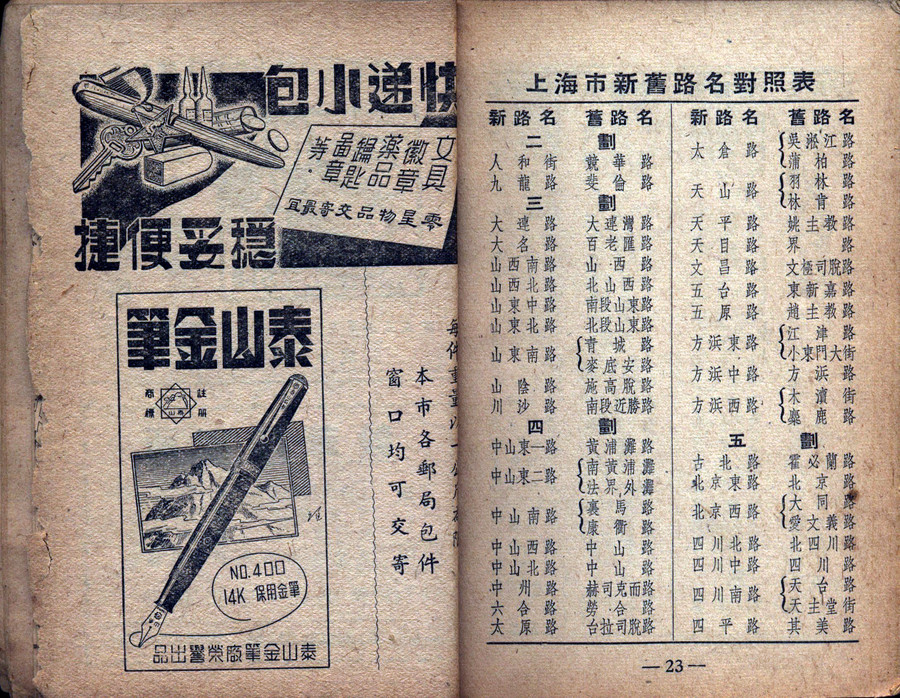 快递小包
文具
徽章
藥品
鑰匙
圖章
等.
零星物品交寄最宜
穩妥便捷
本市各郵局包件
窗口均可交寄
泰山金筆
註册
商標
泰山
NO.400
14K 保用金筆
泰山金筆廠榮譽出品
上海市新舊路名對照表
新路名 舊路名
二劃
人和街 競華路
九龍路 斐倫路
三劃
大連路 大連灣路
大名路 百老匯路
山西南路 山西路
山西北路 北山西路
山東中路 南段山東路
山東北路 北段山東路
山東南路 青城路
麥底安路
山陰路 施高脫路
川沙路 南段近勝路
四劃
中山東一路 黃浦灘路
中山東二路 南黃浦灘
法界外灘
中山南路 裏馬路
康衢路
中山西路 中山路
中山北路 中山路
中州路 赫司克而路
六合路 勞合路
太原路 台拉司脫路
新路名 舊路名
太倉路 吳淞江路
蒲柏路
天山路 羽林路
林肯路
天平路 姚主教路
天目路 界路
文昌路 文極司脫路
五台路 東新嘉路
五原路 趙主教路
方浜東路 江津路
小東門大街
方浜中路 方浜路
方浜西路 木瀆街
麋鹿路
五劃
古北路 霍必蘭路
北京東路 北京路
北京西路 大同路
愛文義路
四川北路 北四川路
四川中路 四川路
四川南路 天台路
天主堂街
四平路 其美路
—23—